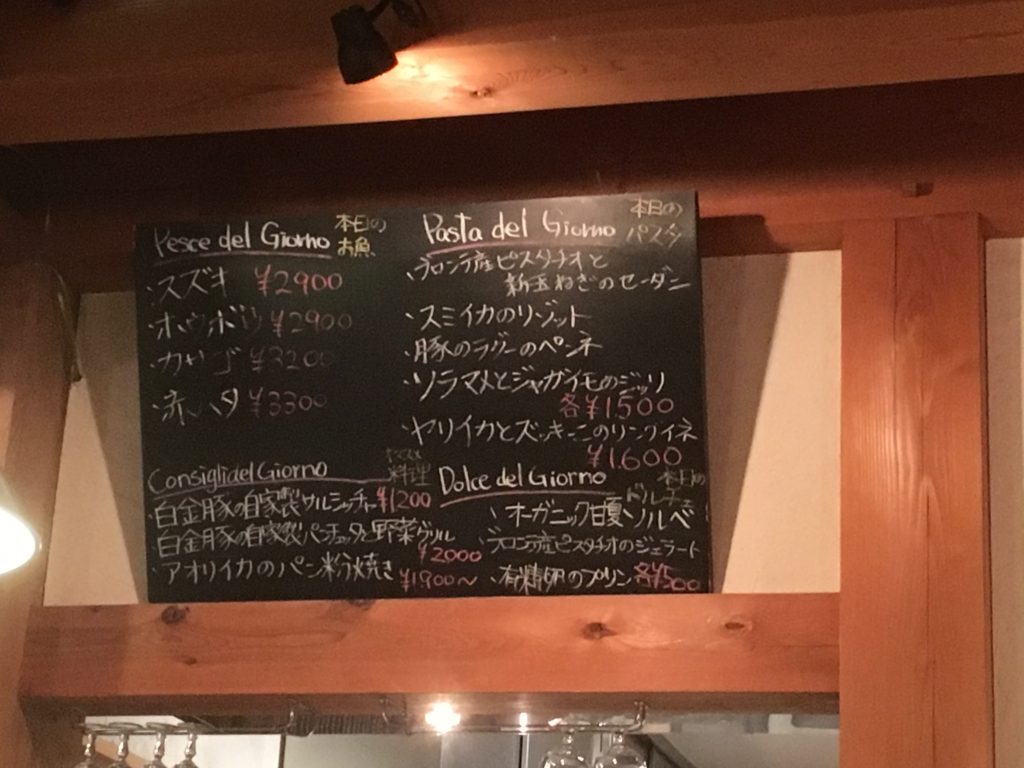 Pesce del Giorno 本日の
お魚
・スズキ ¥2900
・ホウボウ ¥2900
・カサゴ ¥3200
・赤ハタ ¥3300
Pasta del Giorno 本日の
パスタ
・ブロンテ産ピスタチオと
新玉ねぎのセーダニ
・スミイカのリゾット
・豚のラグーのペンネ
・ソラマメとジャガイモのジッリ
各¥1,500
・ヤリイカとズッキーニのリングイネ
¥1,600
Consigli del Giorno 料理
・白金豚の自家製サルシッチャ ¥1200
・白金豚の自家製パンチェッタと野菜グリル
¥2000
・アオリイカのパン粉焼き ¥1,900〜
Dolce del Giorno 本日の
ドルチェ
・オーガニック甘夏ソルベ
・ブロンテ産ピスタチオのジェラート
・有精卵のプリン 各¥500